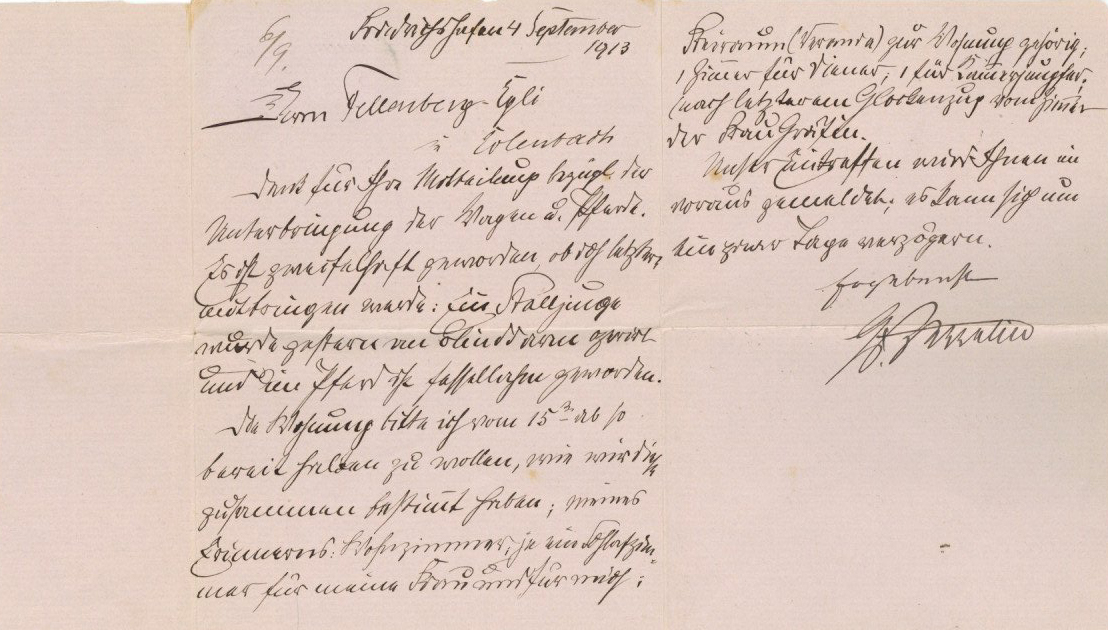 6/9.
Friedrichshafen 4 September
1913
Herrn Fellenberg-Egli
in Erlenbach
Dank für Ihre Mitteilung bezügl. der
Unterbringung der Wagen u. Pferde.
Es ist zweifelhaft geworden, ob ich letztere
mitbringen werde: Ein Stalljunge
wurde gestern am Blinddarm operirt
und ein Pferd ist fessellahm geworden.
Die Wohnung bitte ich vom 15ten ab so
bereit halten zu wollen, wie wir dies
zusammen bestimmt haben; meines
Erinnerns: Wohnzimmer, je ein Schlafzim-
mer für meine Frau und für mich;
Freiraum (Veranda) zur Wohnung gehörig;
1 Zimmer für Diener, 1 für Kammerjungfer,
nach letzterem Glockenzug vom Zimmer
der Frau Gräfin.
Unser Eintreffen wird Ihnen im
voraus gemeldet; es kann sich um
ein paar Tage verzögern.
Ergebenst
Gf. Zeppelin